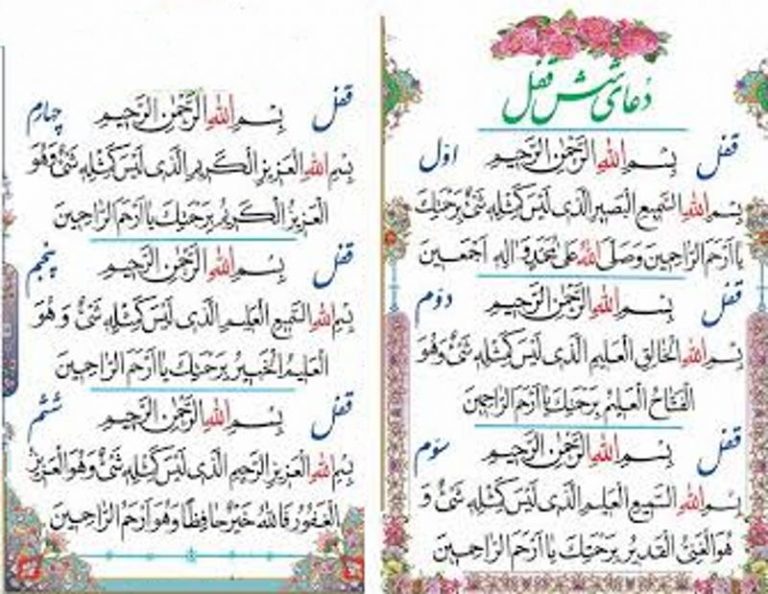 دعای شش قفل
قفل اوّل بِسْمِ اللهِ الرَّحْمٰنِ الرَّحِیمِ
بِسْمِ اللهِ السَّمِیعِ الْبَصِیرِ الَّذی لَیْسَ کَمِثْلِهِ شَیْءٌ بِرَحْمَتِکَ
یا اَرْحَمَ الرّاحِمِینَ وَصَلَّی اللهُ عَلی مُحَمَّدٍ وَ الِهِ اَجْمَعِینَ
قفل دوّم بِسْمِ اللهِ الرَّحْمٰنِ الرَّحِیمِ
بِسْمِ اللهِ الْخالِقِ الْعَلِیمِ الَّذی لَیْسَ کَمِثْلِهِ شَیْءٌ وَهُوَ
الْفَتّاحُ الْعَلِیمُ بِرَحْمَتِکَ یا اَرْحَمَ الرّاحِمِینَ
قفل سوّم بِسْمِ اللهِ الرَّحْمٰنِ الرَّحِیمِ
بِسْمِ اللهِ السَّمِیعِ الْعَلِیمِ الَّذی لَیْسَ کَمِثْلِهِ شَیْءٌ وَ
هُوَ الْغَنِیُّ الْقَدِیرُ بِرَحْمَتِکَ یا اَرْحَمَ الرّاحِمِینَ
قفل چهارم بِسْمِ اللهِ الرَّحْمٰنِ الرَّحِیمِ
بِسْمِ اللهِ الْعَزِیزِ الْکَرِیمِ الَّذی لَیْسَ کَمِثْلِهِ شَیْءٌ وَهُوَ
الْعَزِیزُ الْکَرِیمُ بِرَحْمَتِکَ یا اَرْحَمَ الرّاحِمِینَ
قفل پنجم بِسْمِ اللهِ الرَّحْمٰنِ الرَّحِیمِ
بِسْمِ اللهِ السَّمِیعِ الْعَلِیمِ الَّذی لَیْسَ کَمِثْلِهِ شَیْءٌ وَ هُوَ
الْعَلِیمُ الْخَبِیرُ بِرَحْمَتِکَ یا اَرْحَمَ الرّاحِمِینَ
قفل ششم بِسْمِ اللهِ الرَّحْمٰنِ الرَّحِیمِ
بِسْمِ اللهِ الْعَزِیزِ الرَّحِیمِ الَّذی لَیْسَ کَمِثْلِهِ شَیْءٌ وَ هُوَ الْعَزِیزُ
الْغَفُورُ فَاللهُ خَیْرٌ حافِظًا وَهُوَ اَرْحَمُ الرّاحِمِینَ